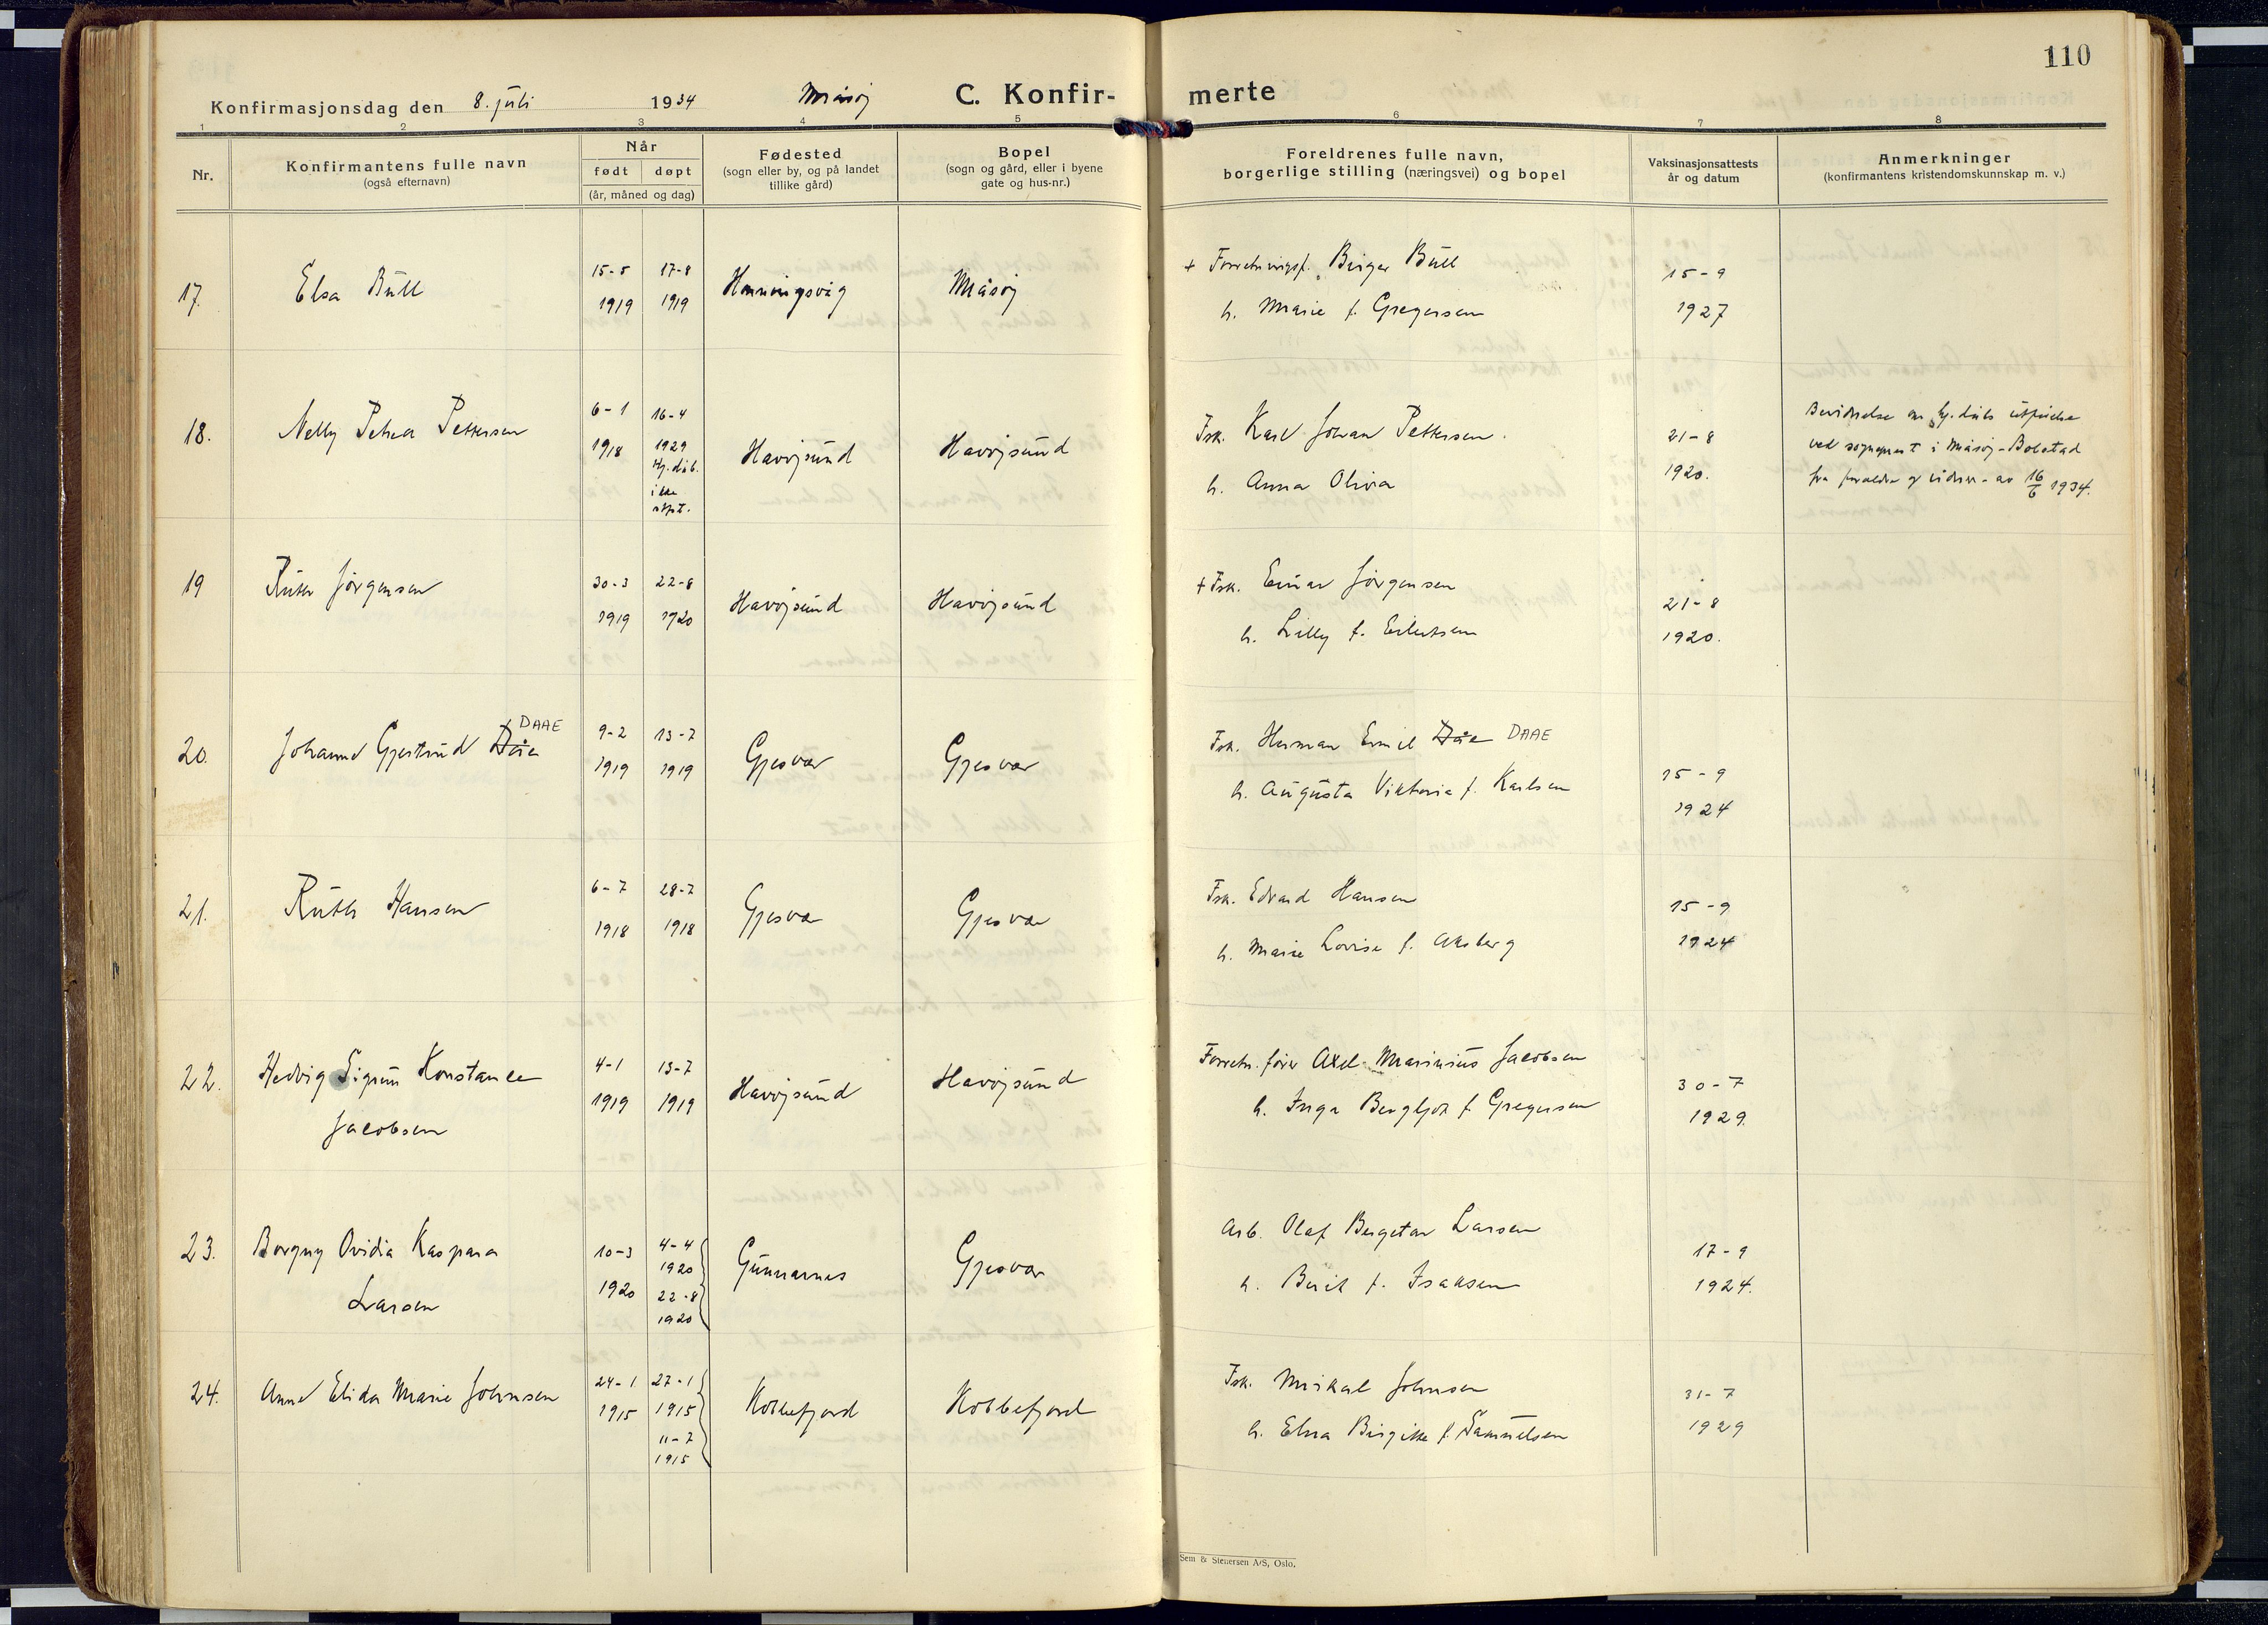 110
Konfirmasjonsdag den 8. juli 1934 Måsøy C. Konfirmerte
1 2 3 4 5 6 7 8
Nr.
Konfirmantens fulle navn
(også efternavn)
Når
født døpt
(år, måned og dag)
Fødested
(sogn eller by, og på landet
tillike gård)
Bopel
(sogn og gård, eller i byene
gate og hus-nr.)
Foreldrenes fulle navn,
borgerlige stilling (næringsvei) og bopel
Vaksinasjonsattests
år og datum
Anmerkninger
(konfirmantens kristendomskunnskap m. v.)
17. Elsa Bull 15-5 1919 17-8 1919 Honningsvåg Måsøy
+ Forretningsf. Birger Bull
h. Marie f. Gregersen
15-9
1927
18. Nelly Petrea Pettersen 6-1 1918 16-4 1929 Hj.dåb. ikke Havøysund Havøysund
Fsk. Karl Johan Pettersen.
h. Anna Oliva
21-8
1920.
Bevidnelse om hj.dåbs utførelse
ved sogneprest i Måsøy - Bolstad
fra foreldre og vidner av 16/6 1934.
19 Ruth Jørgensen 30-3 1919 22-8 1920 Havøysund Havøysund
+ Fsk. Einar Jørgensen
h. Lilly f. Eilertsen
21-8
1920.
20. Johanne Gjertrud Dåe DAAE 9-2 1919 13-7 1919 Gjesvær Gjesvær
Fsk. Herman Emil Dåe DAAE
h. Augusta Viktoria f. Karlsen
15-9
1924
21. Ruth Hansen 6-7 1918 28-7 1918 Gjesvær Gjesvær
Fsk. Edvard Hansen
h. Marie Lovise f. Aksberg
15-9
1924
22. Hedvig Sigrun Konstance
Jacobsen
4-1 1919 13-7 1919 Havøysund Havøysund
Forretn.fører Axel Marinius Jacobsen
h. Inga Bergljot f. Gregersen
30-7
1929.
23. Borgny Ovidia Kaspara
Larsen
10-3 1920 4-4 1920 22-8 1920 Gunnarnes Gjesvær
Arb. Olaf Bergetan Larsen
h. Berit f. Isaksen
17-9
1924.
24. Anne Elida Marie Johnsen 24-1 1915 27-1 1915 11-7 1915 Kobbefjord Kobbefjord
Fsk. Mikal Johnsen
h. Elna Birgitte f. Samuelsen
31-7
1929
Sem & Stenersen A/S, Oslo.